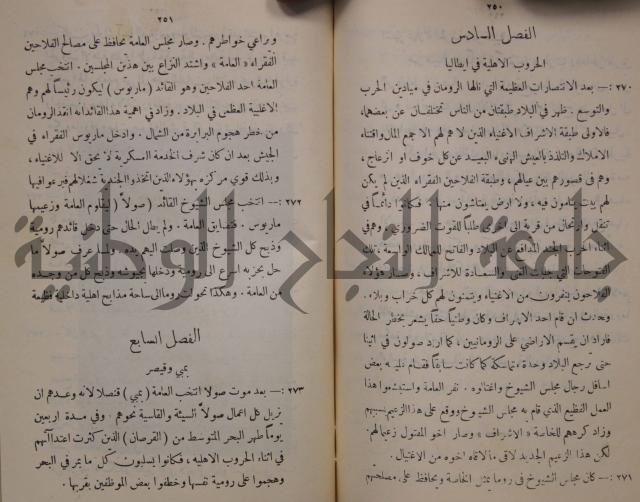 ٢٥٠
الفصل السادس
الحروب الاهلية في ايطاليا
٢٧٠ :— بعد الانتصارات العظيمة التي نالها الرومان في ميادين الحرب
والتوسع . ظهر في البلاد طبقتان من الناس تختلفان عن بعضهما،
فالاولى طبقة الاشراف الاغنياء الذين لا هم لهم الا جمع المال واقتناء
الاملاك والتلذذ بالعيش الهنيء البعيد عن كل خوف او ازعاج ،
وهم في قصورهم بين عيالهم ، وطبقة الفلاحين الفقراء الذين لم يكن
لهم بيت ينامون فيه ، ولا ارض يعتاشون منها . فكانوا دائماً في
تنقل وارتحال من قرية الى اخرى طلباً للقوت الضروري ، وهم في
اثناء الحرب الجند المدافع عن البلاد والفاتح للممالك الواسعة ، تلك
الفتوحات التي جلبت الغنى والسعادة للاشراف ، وصار هؤلاء
الفلاحون ينفرون من الاغنياء ويتمنون لهم كل خراب وبلاء .
وحدث ان قام احد الاشراف وكان وطنياً حقاً يشعر بخطر الحالة
فاراد ان يقسم الاراضي على الرومانيين ، كما اراد صولون في اثينا
حتى ترجع البلاد وحدة متماسكة كما كانت سابقاً فقام عليه بعض
اسافل رجال مجلس الشيوخ واغتالوه . نفر العامة واستبشعوا هذا
العمل الفظيع الذي قام به مجلس الشيوخ ووقع على هذا الزعيم سيبهم
وزاد كرههم للخاصة « الاشراف » وصار اخو المقتول زعيما لهم .
لكن هذا الزعيم الجديد لاقى ما لاقاه اخوه من الاغتيال .
٢٧١ :— كان مجلس الشيوخ في روما يمثل الخاصة ويحافظ على مصلحتهم
٢٥١
ويراعي خواطرهم . وصار مجلس العامة يحافظ على مصالح الفلاحين
الفقراء « العامة » واشتد النزاع بين هذين المجلسين . انتخب مجلس
العامة احد الفلاحين وهو القائد ( ماريوس ) ليكون رئيساً لهم وهم
الاغلبية العظمى في البلاد . وزاد في اهمية هذا القائد انه انقذ الرومان
من خطر هجوم البرابرة من الشمال . وادخل ماريوس الفقراء في
الجيش بعد ان كان شرف الخدمة العسكرية لا يحق الا للاغنياء ،
وبذلك قوي مركزه بهؤلاء الذين اتخذوا الجندية شغلا لهم فبرعوا فيها
٢٧٢ :— انتخب مجلس الشيوخ القائد ( صولا ) ليقاوم العامة وزعيمها
ماريوس . فتضايق العامة . ولم يطل الحال حتى دخل قائدهم رومية
وذبح كل الشيوخ الذين وصلت اليهم يده . ولما عرف صولا ما
حل بحزبه اسرع الى رومية ودخلها بجيوشه وذبح كل من وجده
من العامة . وهكذا تحولت روما الى ساحة مذابح اهلية داخلية فظيعة
الفصل السابع
بمبي وقيصر
٢٧٣ :— بعد موت صولا انتخب العامة ( بمبي ) قنصلا لانه وعدهم ان
يزيل كل اعمال صولا السيئة والقاسية نحوهم . وفي مدة اربعين
يوماً طهر البحر المتوسط من ( القرصان ) الذين كثرت اعتداآتهم
في اثناء الحروب الاهليه ، فكانوا يسلبون كل ما يمر في البحر
وهجموا على رومية نفسها وخطفوا بعض الموظفين بقربها .
جامعة النجاح الوطنية